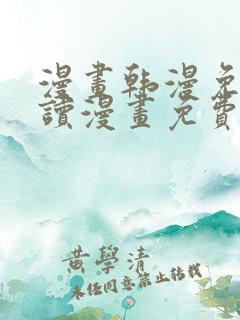 漫畫韩漫免
讀漫畫免費
黄學清
未经同意禁止转载